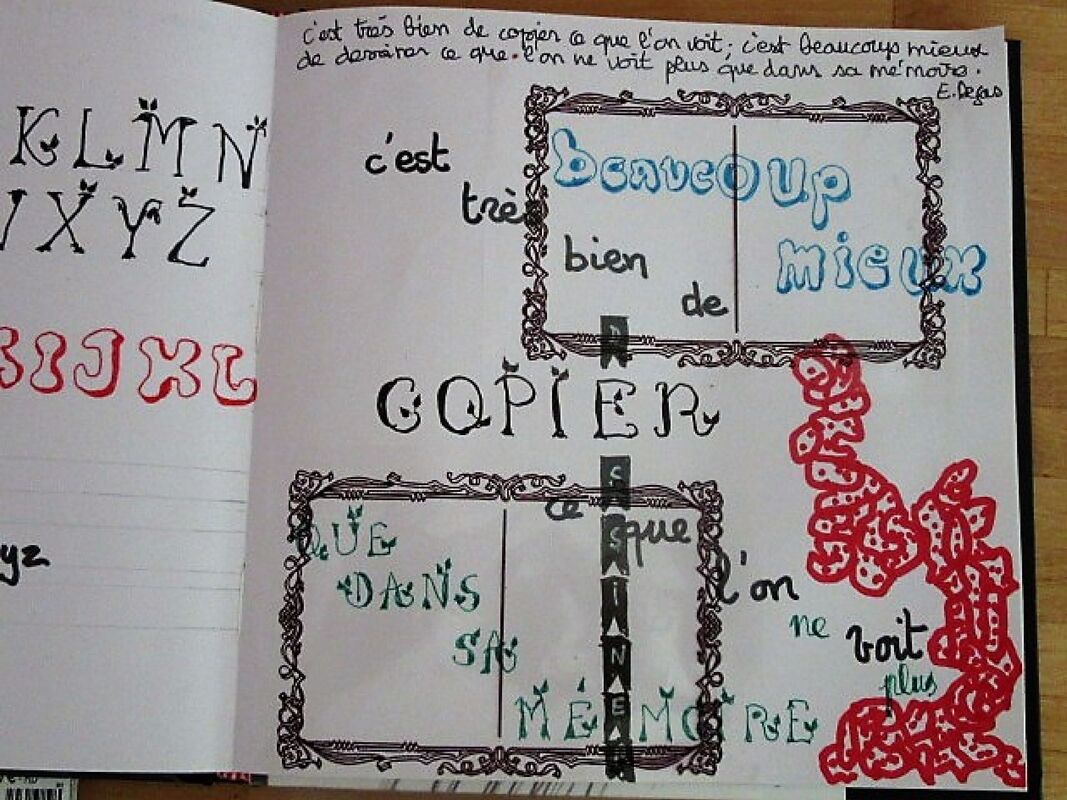 KLMN
XYZ
IJKL
yz
c'est très bien de copier ce que l'on voit; c'est beaucoup mieux
de dessiner ce que l'on ne voit plus que dans sa mémoire.
E. Degas
c'est
très
bien
de
COPIER
ce
que
l'on
voit
beaucoup
mieux
DESSINER
ne
plus
QUE
DANS
SA
MÉMOIRE